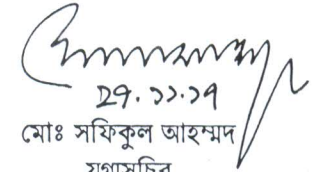 ২৭.১১.১৭
মোঃ সফিকুল আহম্মদ
যুগ্মসচিব